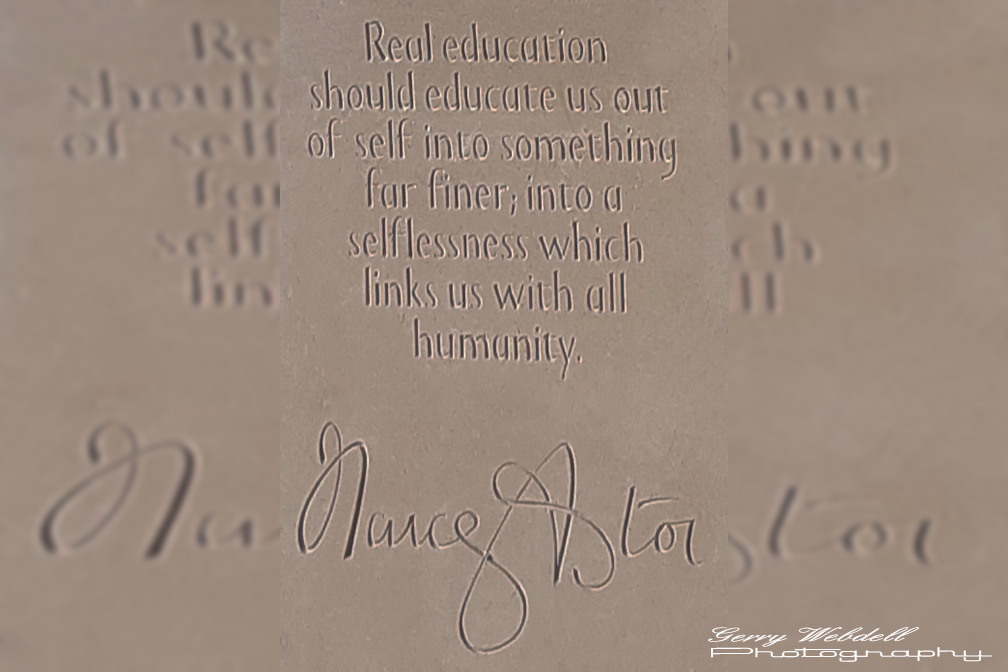 Real education
should educate us out
of self into something
far finer; into a
selflessness which
links us with all
humanity.
Nancy Astor
Gerry Webdell
Photography